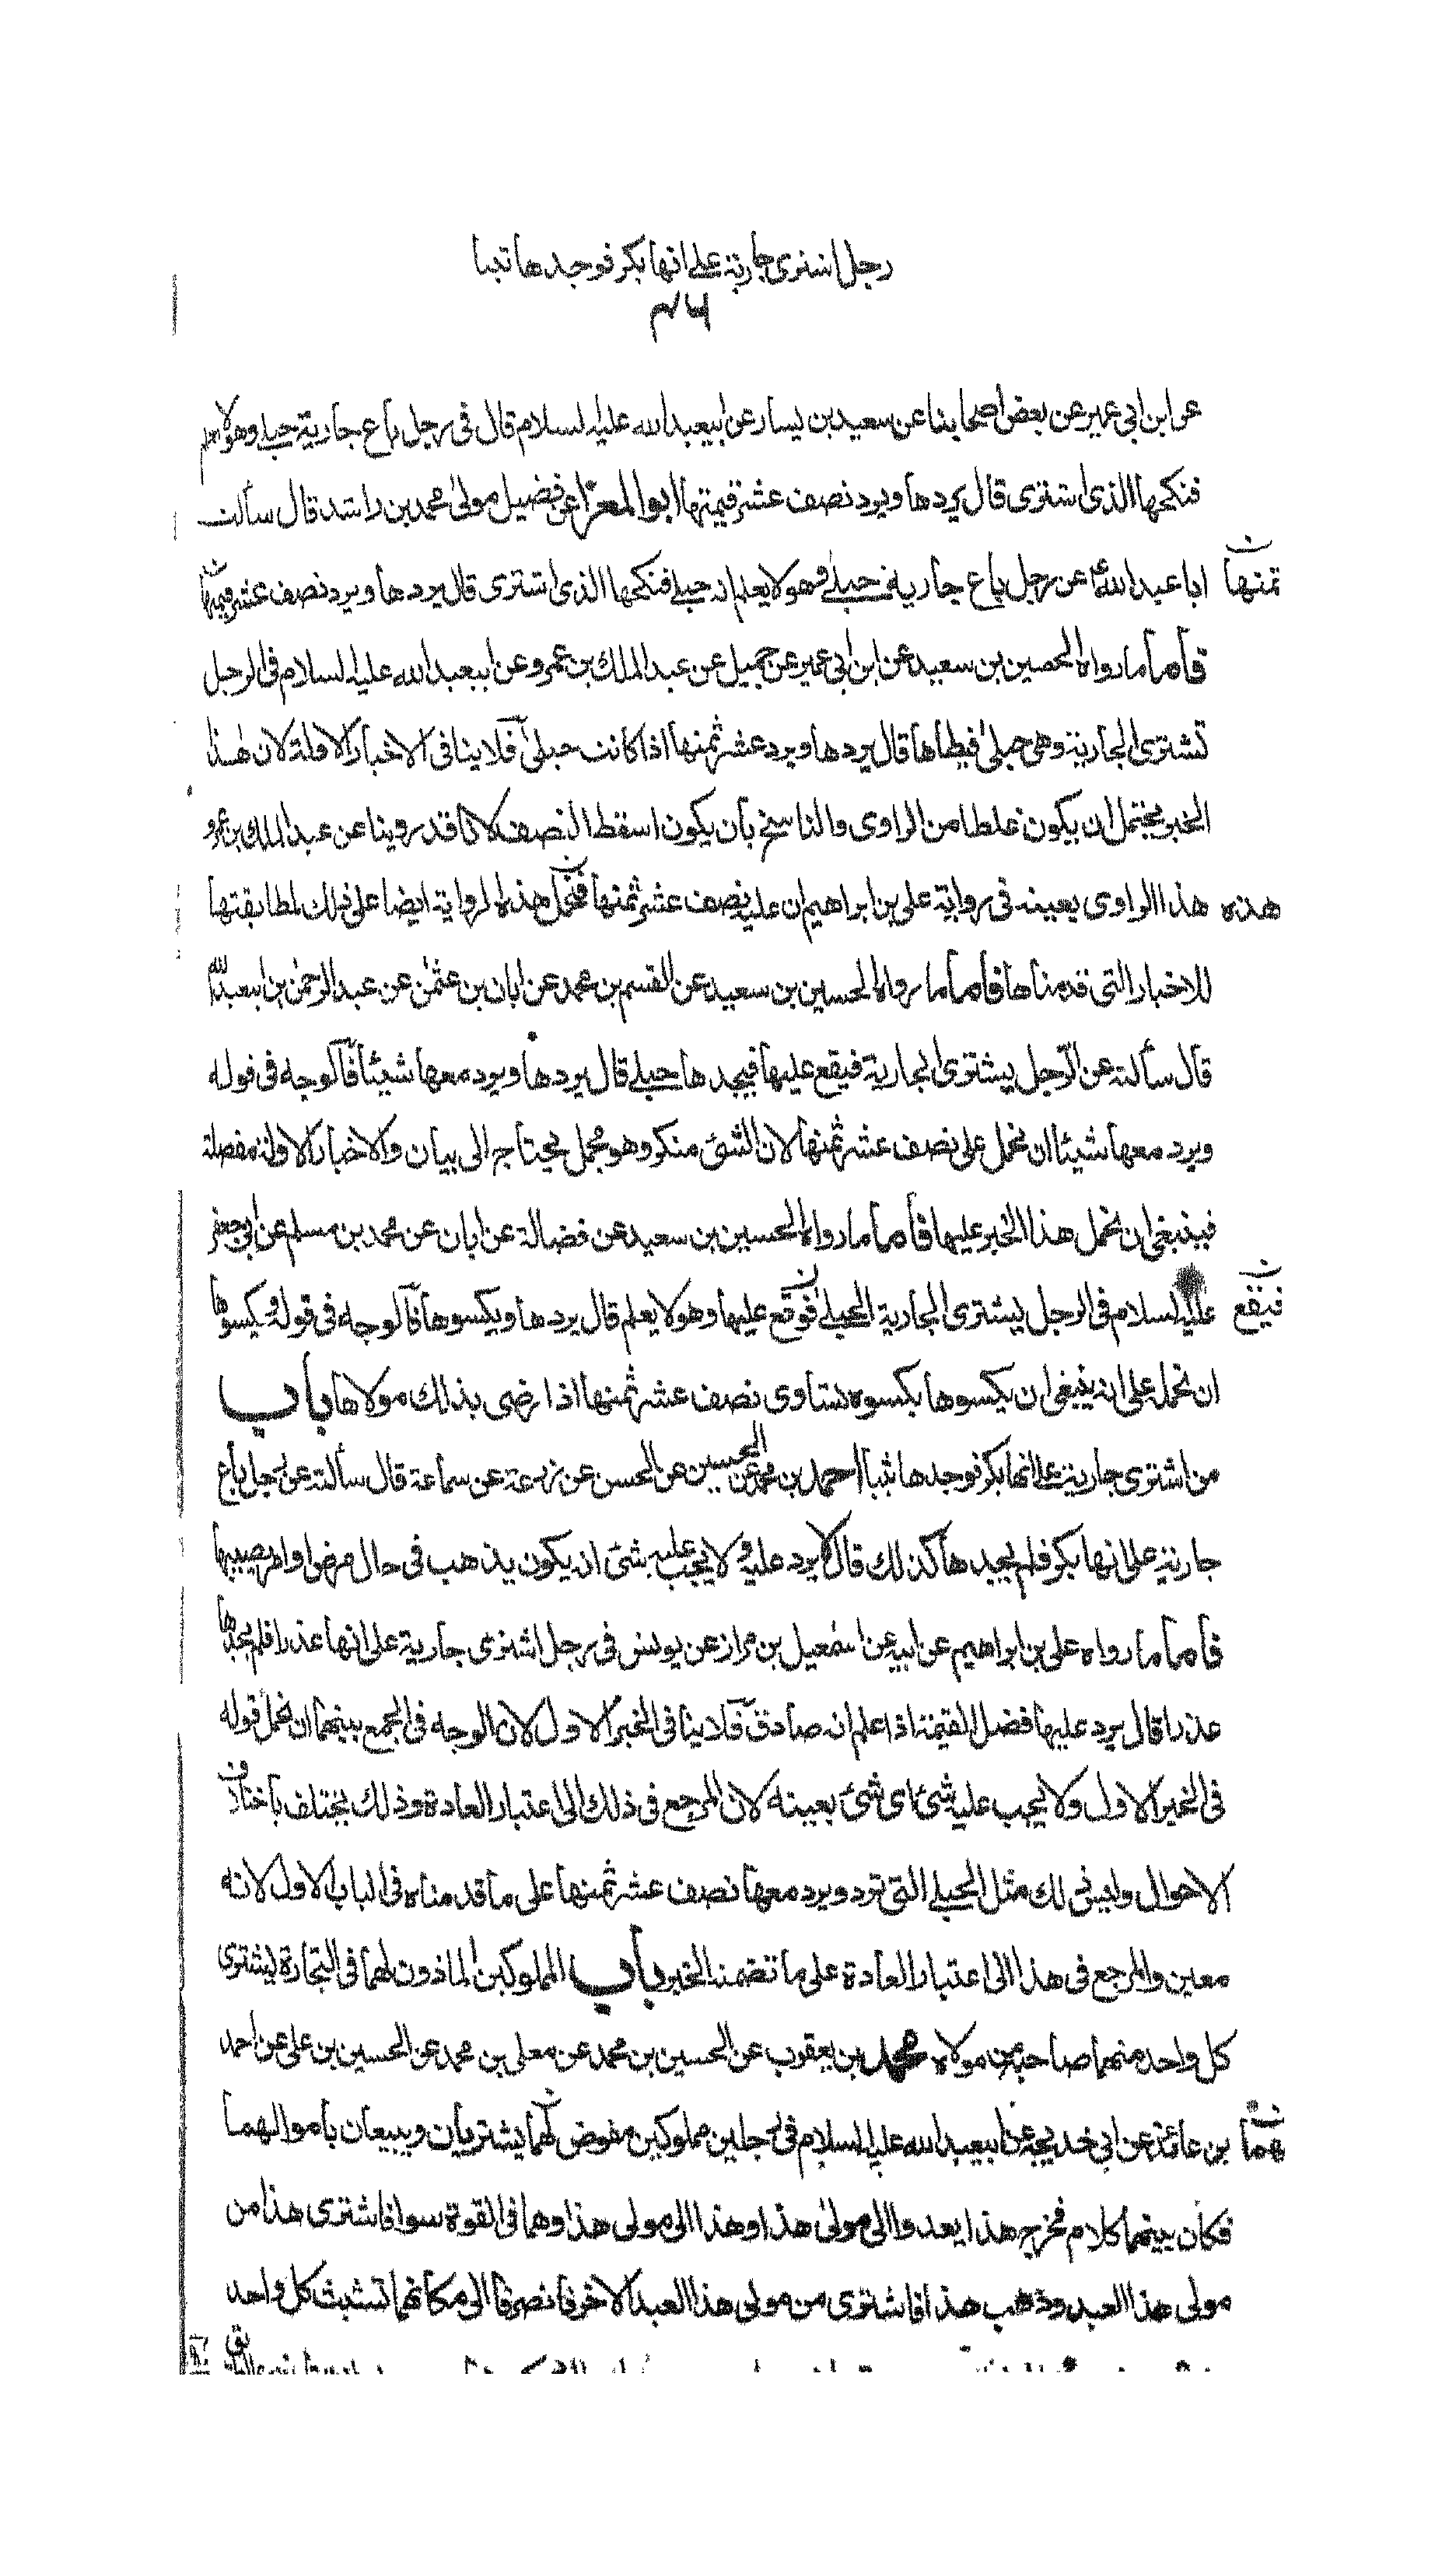 رجل اشترى جارية على انها بكر فوجدها ثيبا
عن ابن ابي عمير عن بعض اصحابنا عن سعيد بن يسار عن ابيعبدالله عليه السلام قال في رجل باع جارية حبلى وهو لا يعلم
فنكحها الذى اشترى قال يردها ويرد نصف عشر قيمتها ابو المعزا عن فضيل مولى محمد بن راشد قال سألت
ثمنها ابا عبدالله ع عن رجل باع جارية حبلى وهو لا يعلم انه حبلى فنكحها الذى اشترى قال يردها ويرد نصف عشر قيمتها
فأما ما رواه الحصين بن سعيد عن ابن ابي عمير عن جميل عن عبد الملك بن عمرو عن ابيعبدالله عليه السلام في الرجل
تشترى الجارية وهي حبلى فيطاها قال يردها ويرد عشر ثمنها اذا كانت حبلى فلا ينافى الاخبار الاولة لان هذا
الخبر يحتمل ان يكون غلطا من الراوى والناسخ بأن يكون اسقط النصف لانا قد روينا عن عبد الملك بن عمرو
هذه هذا الراوى بعينه في رواية علي بن ابراهيم ان عليه نصف عشر ثمنها فنحمل هذه الرواية ايضا على ذلك لمطابقتها
للاخبار التي قدمناها فأما ما رواه الحسين بن سعيد عن القسم بن محمد عن ابان بن عثمن عن عبد الرحمن بن ابيعبدالله
قال سألته عن الرجل يشترى الجارية فيقع عليها فيجدها حبلى قال يردها ويرد معها شيئا فالوجه في قوله
ويرد معها شيئا ان نحمل على نصف عشر ثمنها لان الشئ منكر وهو مجمل يحتاج الى بيان والاخبار الاولة مفصلة
فينبغي ان نحمل هذا الخبر عليها فأما ما رواه الحسين بن سعيد عن فضالة عن ابان عن محمد بن مسلم عن ابي جعفر
فيقع عليه السلام في الرجل يشترى الجارية الحبلى فوقع عليها وهو لا يعلم قال يردها ويكسوها فالوجه في قوله ويكسوها
ان نحمله على انه ينبغي ان يكسوها بكسوة تساوى نصف عشر ثمنها اذا رضى بذلك مولاها باب
من اشترى جارية على انها بكر فوجدها ثيبا احمد بن محمد عن الحسين عن الحسن عن زرعة عن سماعة قال سألته عن رجل باع
جارية على انها بكر فلم يجدها كذلك قال لا يرد عليه ولا يجب عليه شئ انه يكون يذهب في حال مرض او امر يصيبها
فأما ما رواه علي بن ابراهيم عن ابيه عن اسمعيل بن مرار عن يونس في رجل اشترى جارية على انها عذرا فلم يجدها
عذرا قال يرد عليها فضل القيمة اذا علم انه صادق فلا ينافى الخبر الاول لان الوجه في الجمع بينهما ان نحمل قوله
في الخبر الاول ولا يجب عليه شئ اى شئ بعينه لان المرجع في ذلك الى اعتبار العادة وذلك يختلف باختلاف
الاحوال وليس ذلك مثل الحبلى التي ترد ويرد معها نصف عشر ثمنها على ما قدمناه في الباب الاول لانه
معين والمرجع في هذا الى اعتبار العادة على ما تضمنه الخبر باب المملوكين الماذون لهما في التجارة يشترى
كل واحد منهما صاحبه من مولاه محمد بن يعقوب عن الحسين بن محمد عن معلى بن محمد عن الحسين بن علي عن احمد
لهما بن عائذ عن ابي خديجة عن ابيعبدالله عليه السلام في رجلين مملوكين مفوض لهما يشتريان ويبيعان باموالهما
فكان بينهما كلام فخرج هذا يعدو الى مولى هذا وهذا الى مولى هذا وهما في القوة سوا فاشترى هذا من
مولى هذا العبد وذهب هذا فاشترى من مولى هذا العبد الاخر فانصرفا الى مكانهما تشبث كل واحد